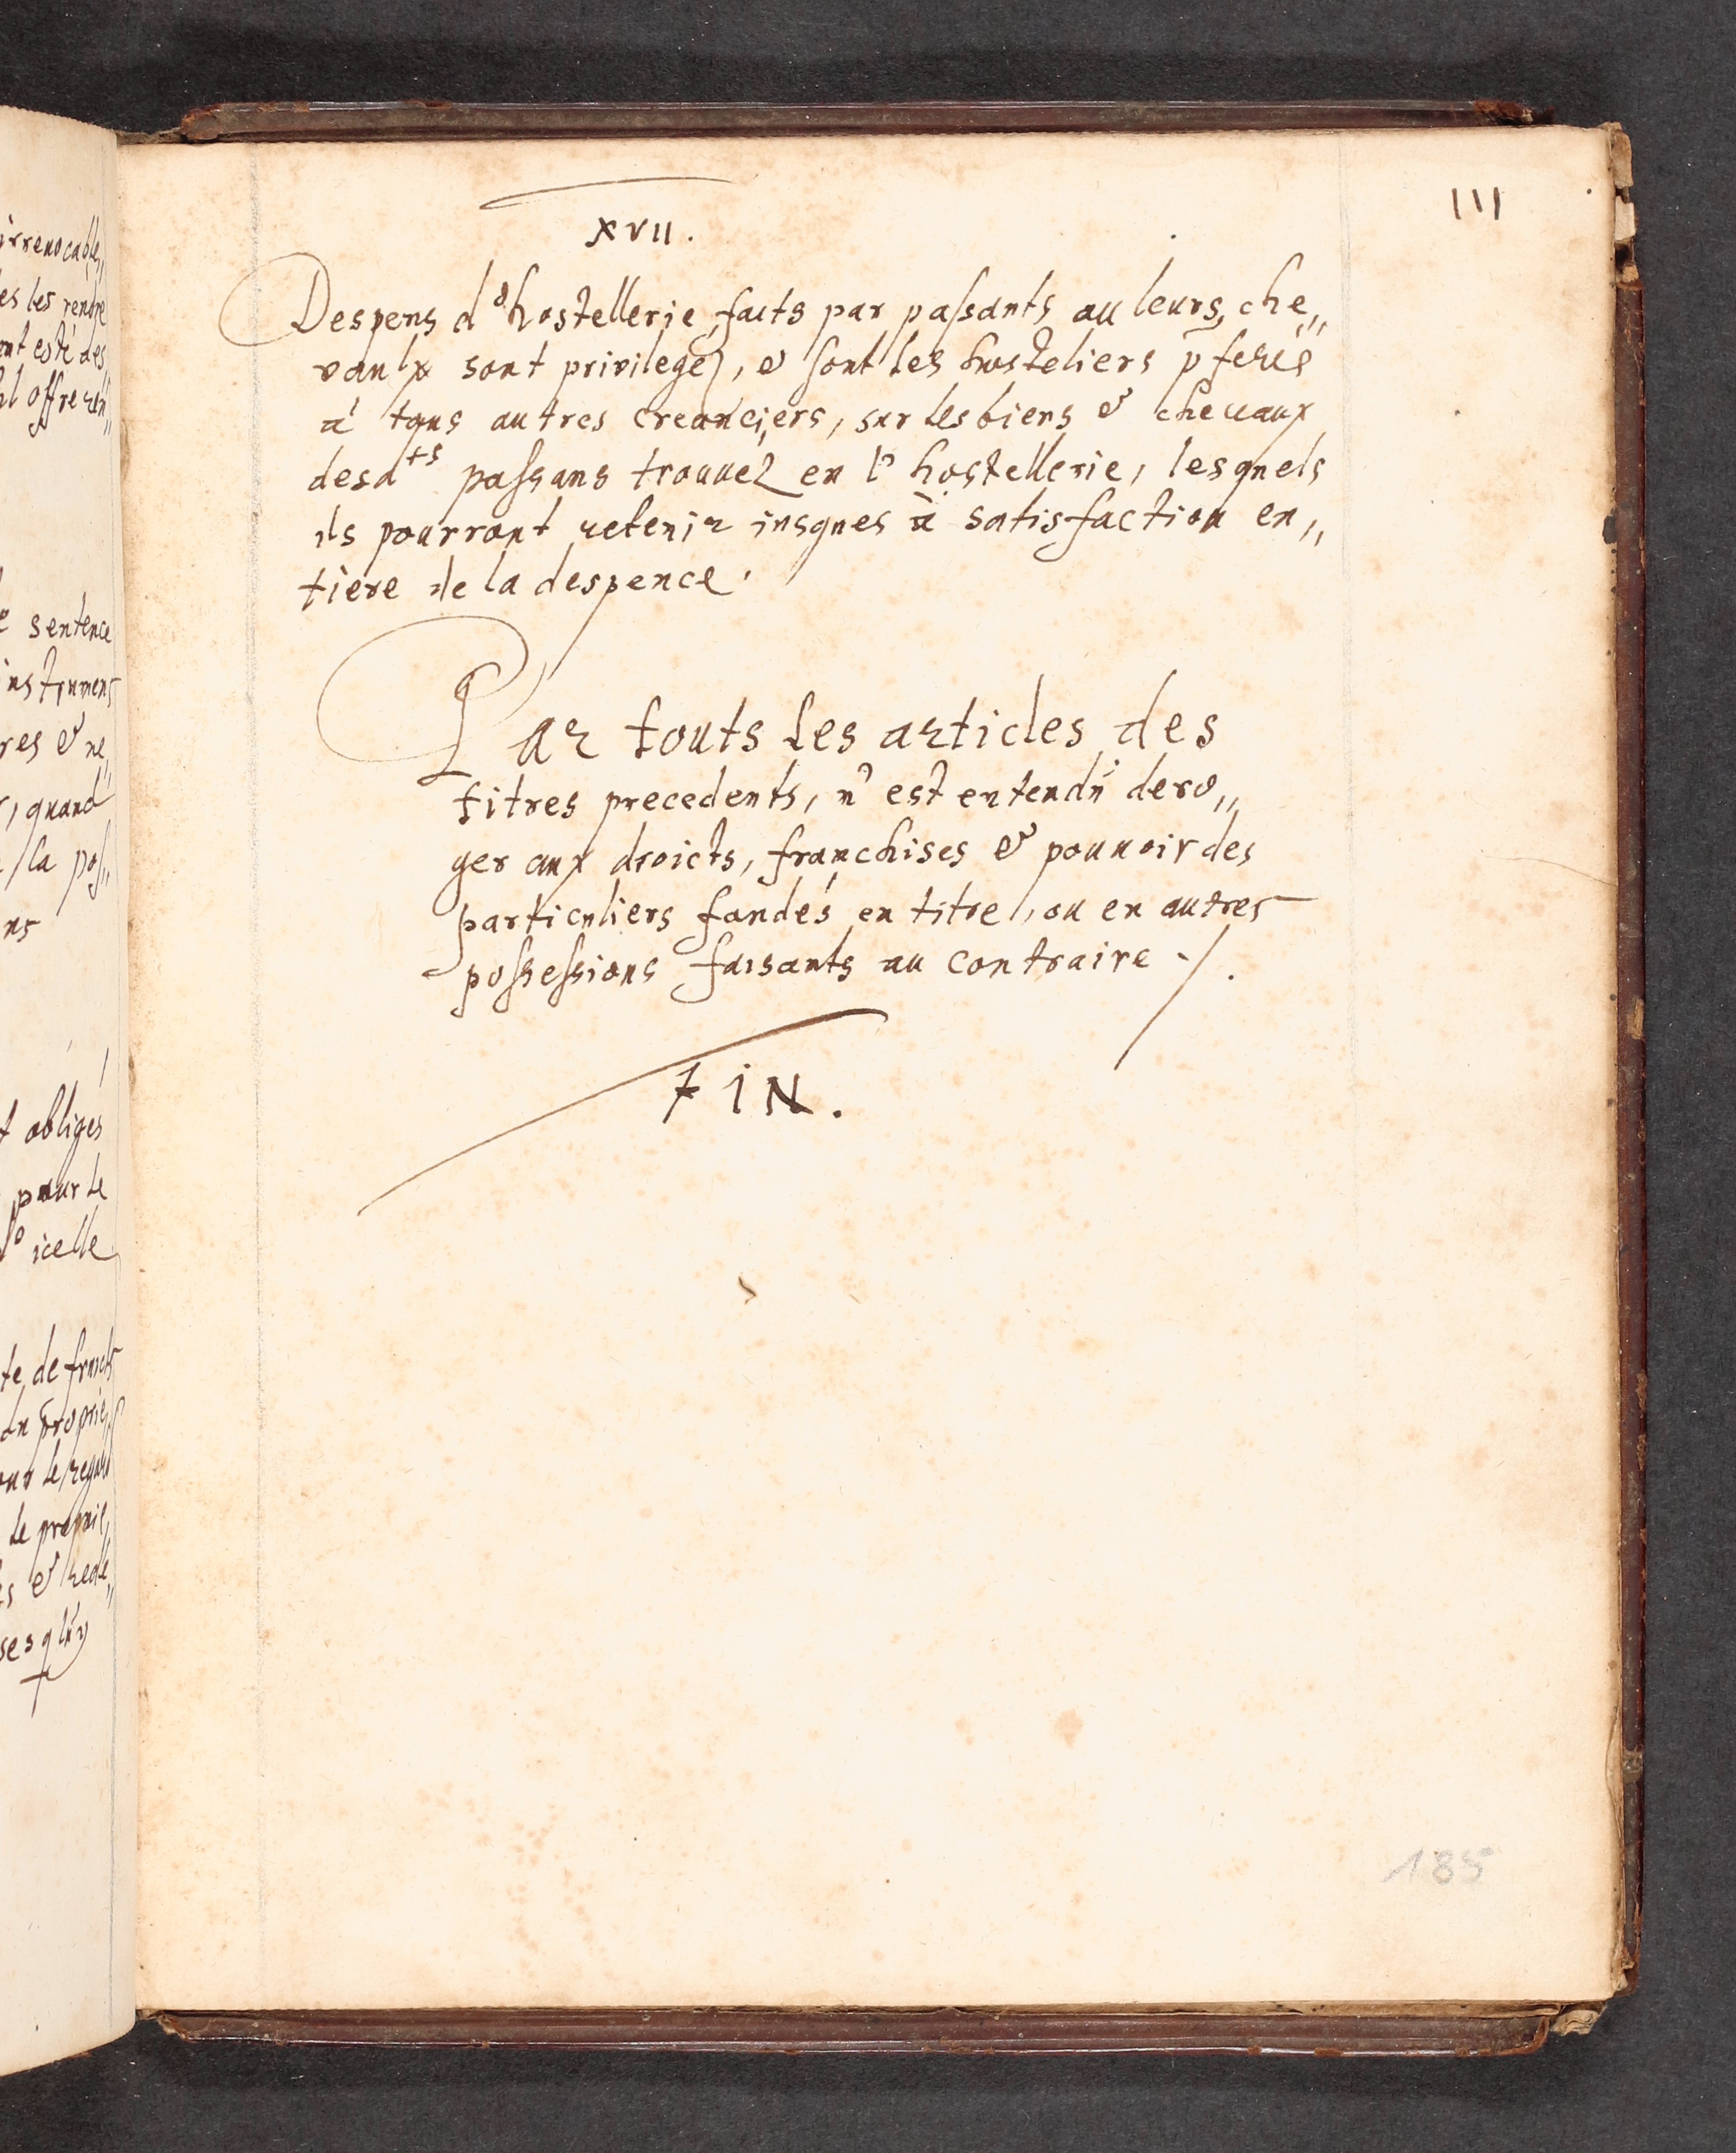 irreuocable,
es les rendre
ont esté des
offre ren„
sentence
instrumens
res & ne„
quand
la pos„
ns
obligés
pour le
d' icelle
te de fruicts
le proprié
111
XVII.
Despens d'hostellerie faits par passants au leurs che„
vaulx sont privilegez, & sont les hosteliers p̄ferés
à tous autres creanciers, sur les biens & cheuaux
desdts passans trouuez en l'hostellerie, lesquels
ils pourront retenir iusques à satisfaction en„
tiere de la despence.
Par touts les articles des
titres precedents, n'est entendu dero„
ger aux droicts, franchises & pouuoir des
particuliers fondés en titre, ou en autres
possessions faisants au contraire ./.
FIN.
185